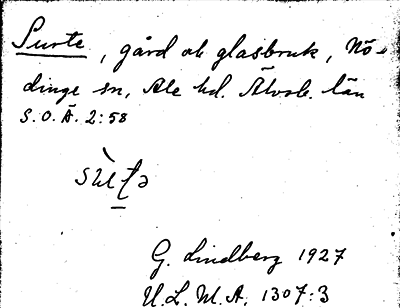 Surte, gård ok glasbruk, Nö-
dinge sn, Ale hd. Älvsb. län
S.O.Ä. 2:58
G. Lindberg 1927
U.L.M.A. 1307:3